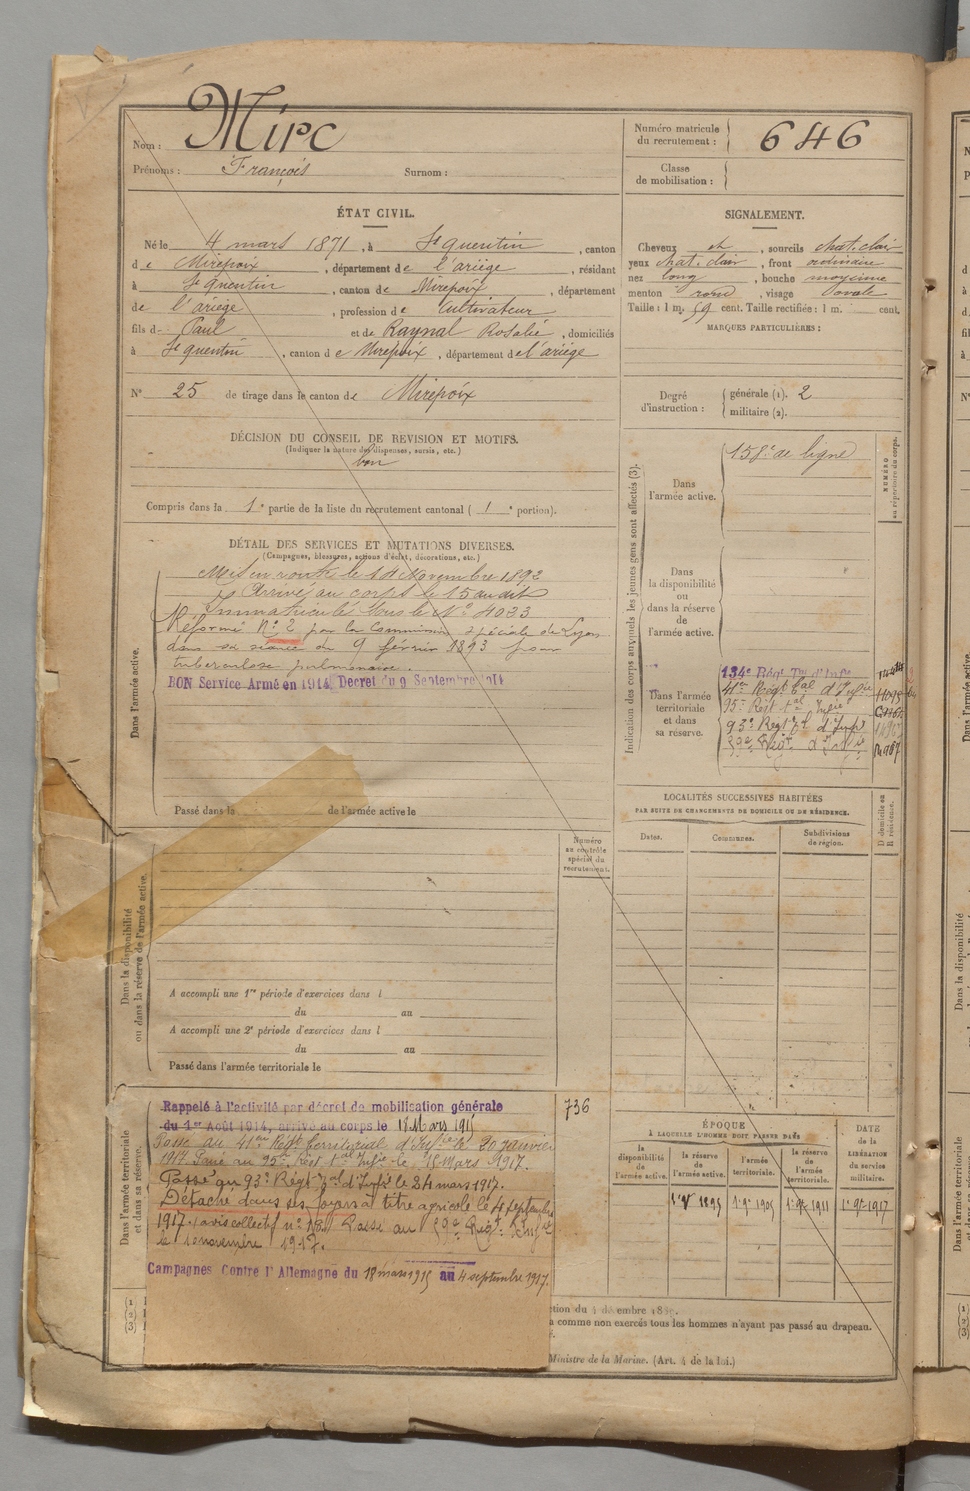 Nom : Mirc
Prénoms : François Surnom :
Numéro matricule du recrutement : 646
Classe de mobilisation :
ÉTAT CIVIL.
Né le 4 mars 1871, à St quentin, canton
de Mirepoix, département de l'ariège, résidant
à St quentin, canton de Mirepoix, département
de l'ariège, profession de Cultivateur
fils d- Paul et de Raynal Rosalie, domiciliés
à St quentin, canton de Mirepoix, département de l'ariège
N° 25 de tirage dans le canton de Mirepoix
SIGNALEMENT.
Cheveux et, sourcils chat. clair
yeux chat. clair, front ordinaire
nez long, bouche moyenne
menton rond, visage ovale
Taille : 1 m. 59 cent. Taille rectifiée : 1 m. cent.
MARQUES PARTICULIÈRES :
Degré d'instruction : générale (1). 2
militaire (2).
DÉCISION DU CONSEIL DE REVISION ET MOTIFS.
(Indiquer la nature des dispenses, sursis, etc.)
bon
Compris dans la 1e partie de la liste du recrutement cantonal ( 1e portion).
DÉTAIL DES SERVICES ET MUTATIONS DIVERSES.
(Campagnes, blessures, actions d'éclat, décorations, etc.)
Dans l'armée active.
Mis en route le 14 Novembre 1892
Arrivé au corps le 15 au dit
Immatriculé sous le N° 4033
Réformé N° 2 par la Commission spéciale de Lyon
dans sa séance du 9 février 1893 pour
tuberculose pulmonaire.
BON Service Armé en 1914 Décret du 9 Septembre 1914
Passé dans la de l'armée active le
Indication des corps auxquels les jeunes gens sont affectés (3).
NUMÉRO au répertoire du corps.
Dans l'armée active.
158e de ligne
Dans la disponibilité ou dans la réserve de l'armée active.
Dans l'armée territoriale et dans sa réserve.
134e Régt Tal d'Infie
41e Régt tal d'Infie
95e Régt tal Infie
93e Régt tal d'Infie
LOCALITÉS SUCCESSIVES HABITÉES
PAR SUITE DE CHANGEMENTS DE DOMICILE OU DE RÉSIDENCE.
Dates. Communes. Subdivisions de région. D domicile ou R résidence.
Dans la disponibilité ou dans la réserve de l'armée active.
Numéro au contrôle spécial du recrutement.
A accompli une 1re période d'exercices dans l
du au
A accompli une 2e période d'exercices dans l
du au
Passé dans l'armée territoriale le
Dans l'armée territoriale et dans sa réserve.
Rappelé à l'activité par décret de mobilisation générale
du 1er Août 1914, arrivé au corps le 18 Mars 1915
Passé au 41em Régt territorial d'Infie le 20 janvier
1917. Passé au 95e Régt tal Infie le 18 Mars 1917.
Passé au 93e Régt tal d'Infie le 24 mars 1917.
Détaché dans ses foyers à titre agricole le 4 septembre
1917. (avis collectif n° Passé au Régt Infie
le 10 novembre 1917.
Campagnes Contre l'Allemagne du 18 mars 1915 au 4 septembre 1917.
736
ÉPOQUE
À LAQUELLE L'HOMME DOIT PASSER DANS
la disponibilité de l'armée active. la réserve de l'armée active. l'armée territoriale. la réserve de l'armée territoriale.
DATE de la LIBÉRATION du service militaire.
1er 9bre 1895 1er 9bre 1905 1er 9bre 1911 1er 9bre 1917
(1)
(2)
(3)
comme non exercés tous les hommes n'ayant pas passé au drapeau.
Ministre de la Marine. (Art. 4 de la loi.)